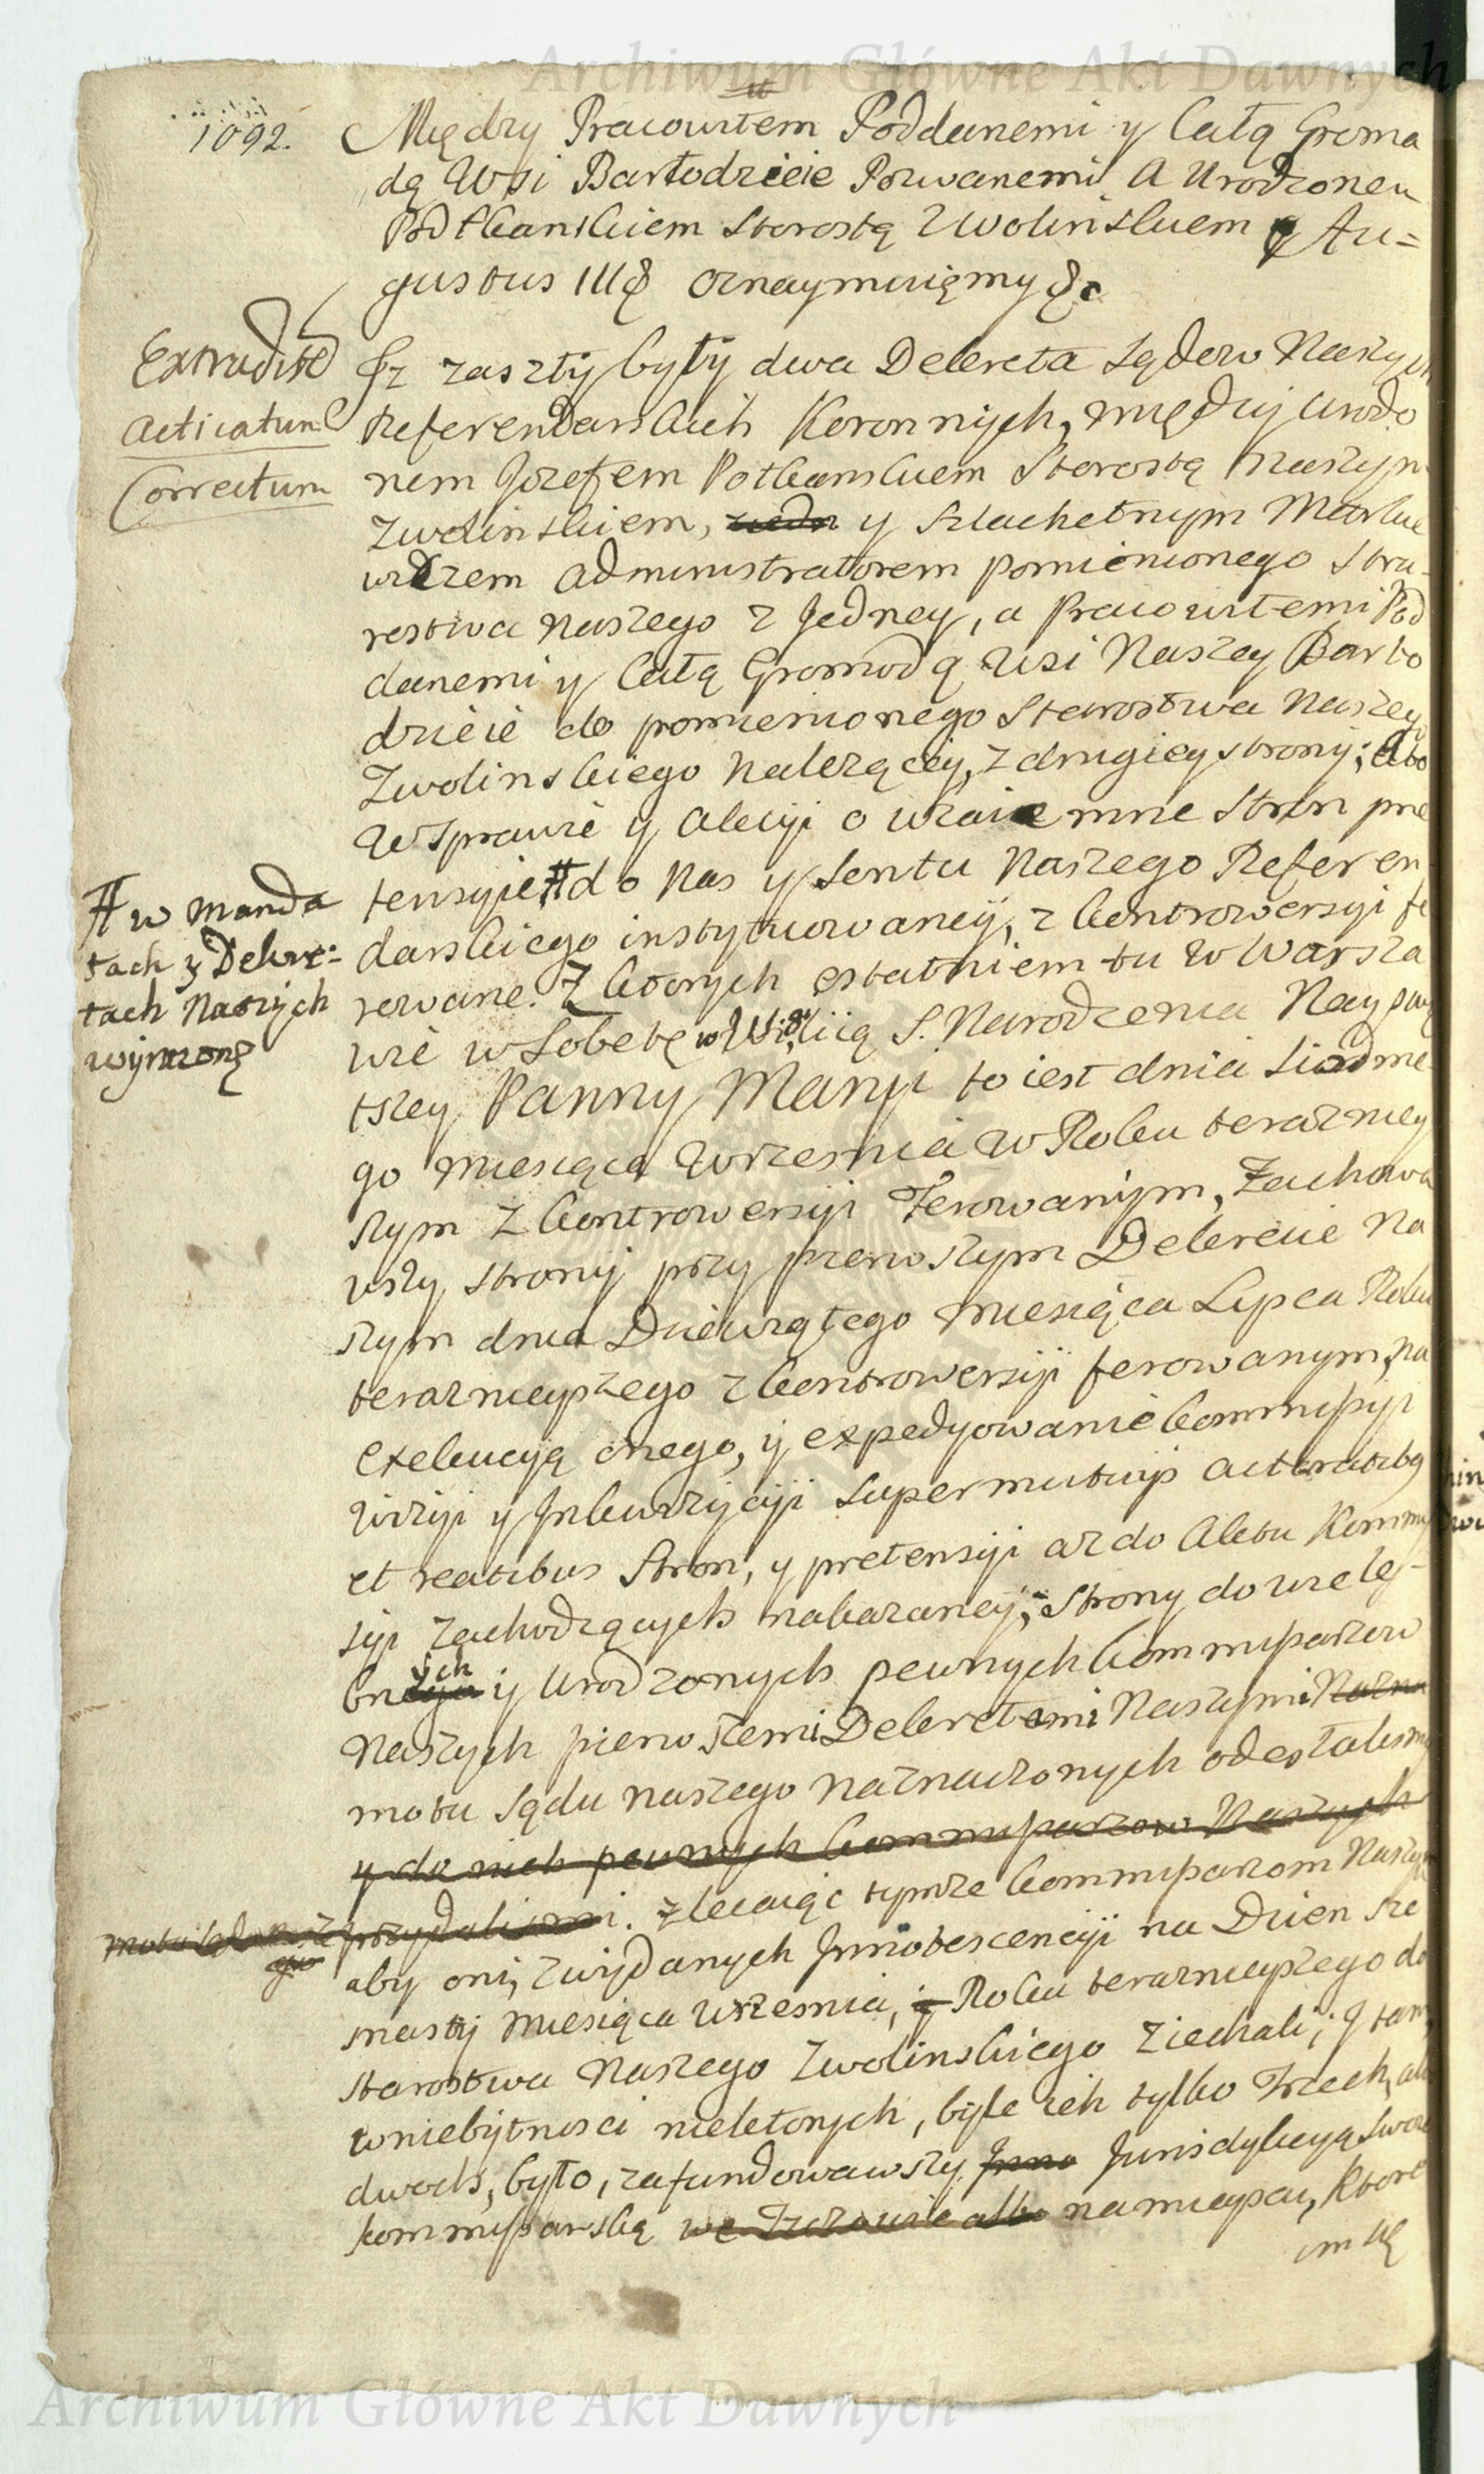 Archiwum Główne Akt Dawnych
1092.
Między Pracowitem Poddanemi y Całą Groma
dą Wsi Bartodzieie Pozwanemi A Urodzonem
Potkanskiem Starostą Zwolinskiem Au=
gustus IIIs Oznaymuięmy &c
Extraditum
Acticatum
Correctum
Jz zaszły były dwa Dekreta Sądow Naszych
Referendarskich Koronnych, między Urodzo
nem Jozefem Potkanskiem Starostą Naszym
Zwolinskiem, y Szlachetnym Markie
wiczem Administratorem pomienionego Sta-
rostwa Naszego z Jedney, a Pracowitemi Pod
danemi y Całą Gromadą Wsi Naszey Barto
dzieie do pomienionego Starostwa Naszego
Zwolinskiego Należącey, z drugiey strony; Abo
W Sprawie y Akcyi o wzaiemne Stron pre
tensyie # do Nas y Sądu Naszego Referen
darskiego instytuowaney, z kontrowersyi fe
rowane. Z ktorych ostatniem tu w Warsza
wie w Sobotę w Wigilią S. Narodzenia Nayswię
tszey Panny Maryi to iest dnia Siodme
go Miesiąca Wrzesnia w Roku terazniey
szym z kontrowersyi Ferowanym, Zachowa
wszy strony przy pierwszym Dekrecie Na
szym dnia Dziewiątego Miesiąca Lipca Roku
terazniejszego z kontrowersyi ferowanym, na
Exekucyą onego, y expedyowanie kommissyi
Wizyi y Jnkwizycyi super mutuis actoratibus
et reatibus Stron, y pretensyi aż do Aktu Kommis
syi zachodzących nakazaney, Strony do wielo-
knych y Urodzonych pewnych kommissarzow
Naszych pierwszemi Dekretami Naszymi
motu Sądu naszego Naznaczonych odesłalismy
y do nich pewnych kommissarzow Naszych
przydalismi. zlecaiąc tymże kommissarzom Naszym
aby oni, z wydanych Jnnotescencyi na Dzien sze
snasty Miesiąca Wrzesnia, Roku terazniejszego do
Starostwa Naszego Zwolinskiego ziechali; J tam,
w niebytnosci niektorych, byle ich tylko Trzech, albo
dwoch, było, zafundowawszy Jurisdykcyą Swoię
kommissarską na mieyscu, Ktore
im się
# w Manda
tach y Dekre=
tach Naszych
wyrazone
Archiwum Główne Akt Dawnych